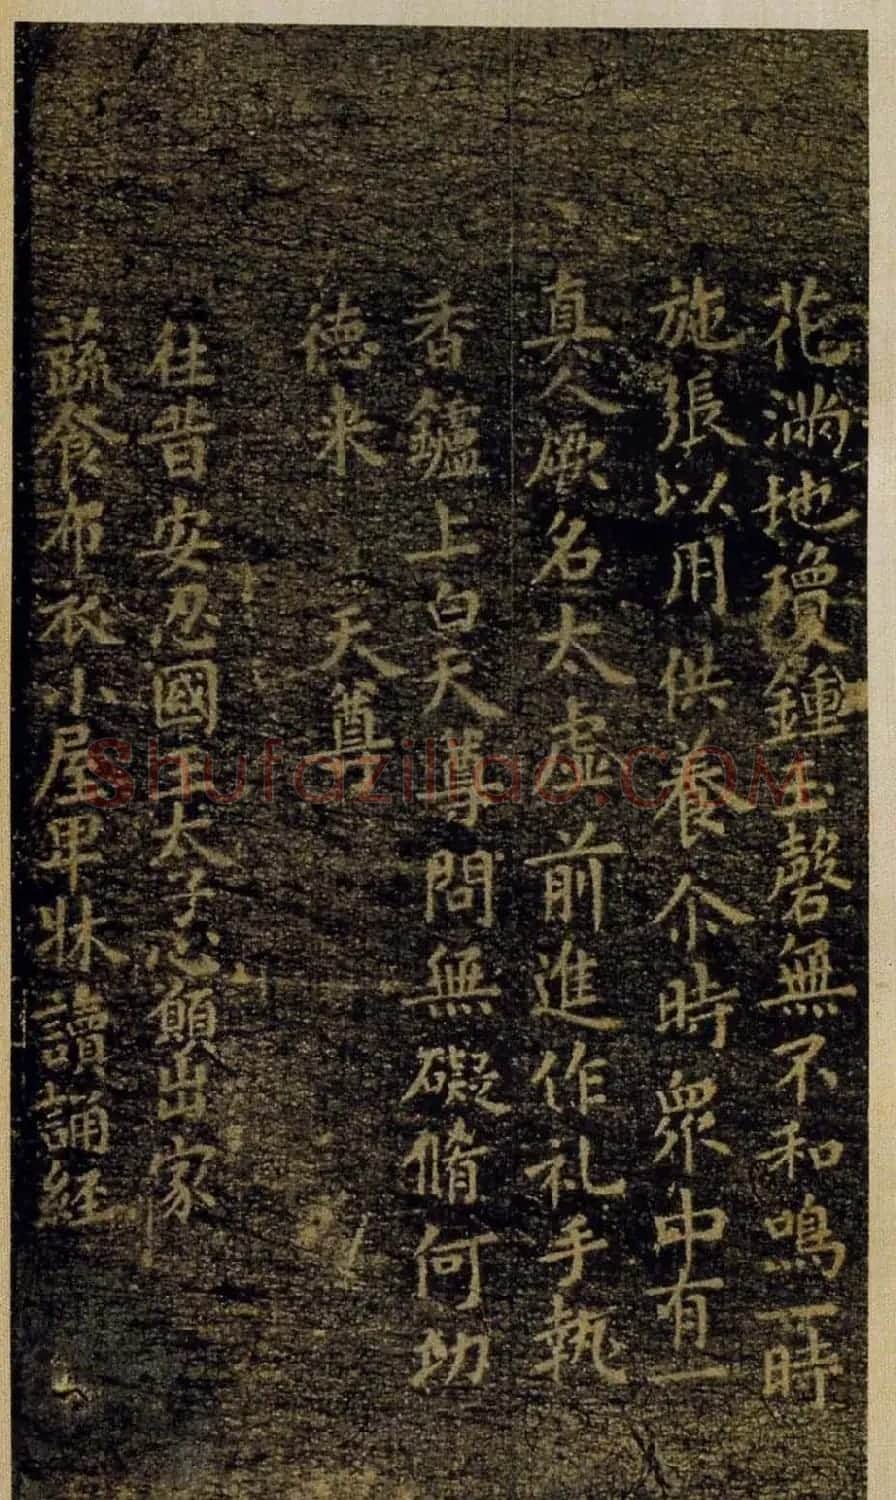 花滿地瓊鍾玉磬無不和鳴一時
施張以用供養尒時衆中有一
真人厥名太虛前進作礼手執
香鑪上白天尊問無礙脩何功
徳来 天尊
往昔安忍國王太子心願出家
蔬食布衣小屋卑牀讀誦経
Shufaziliao.COM